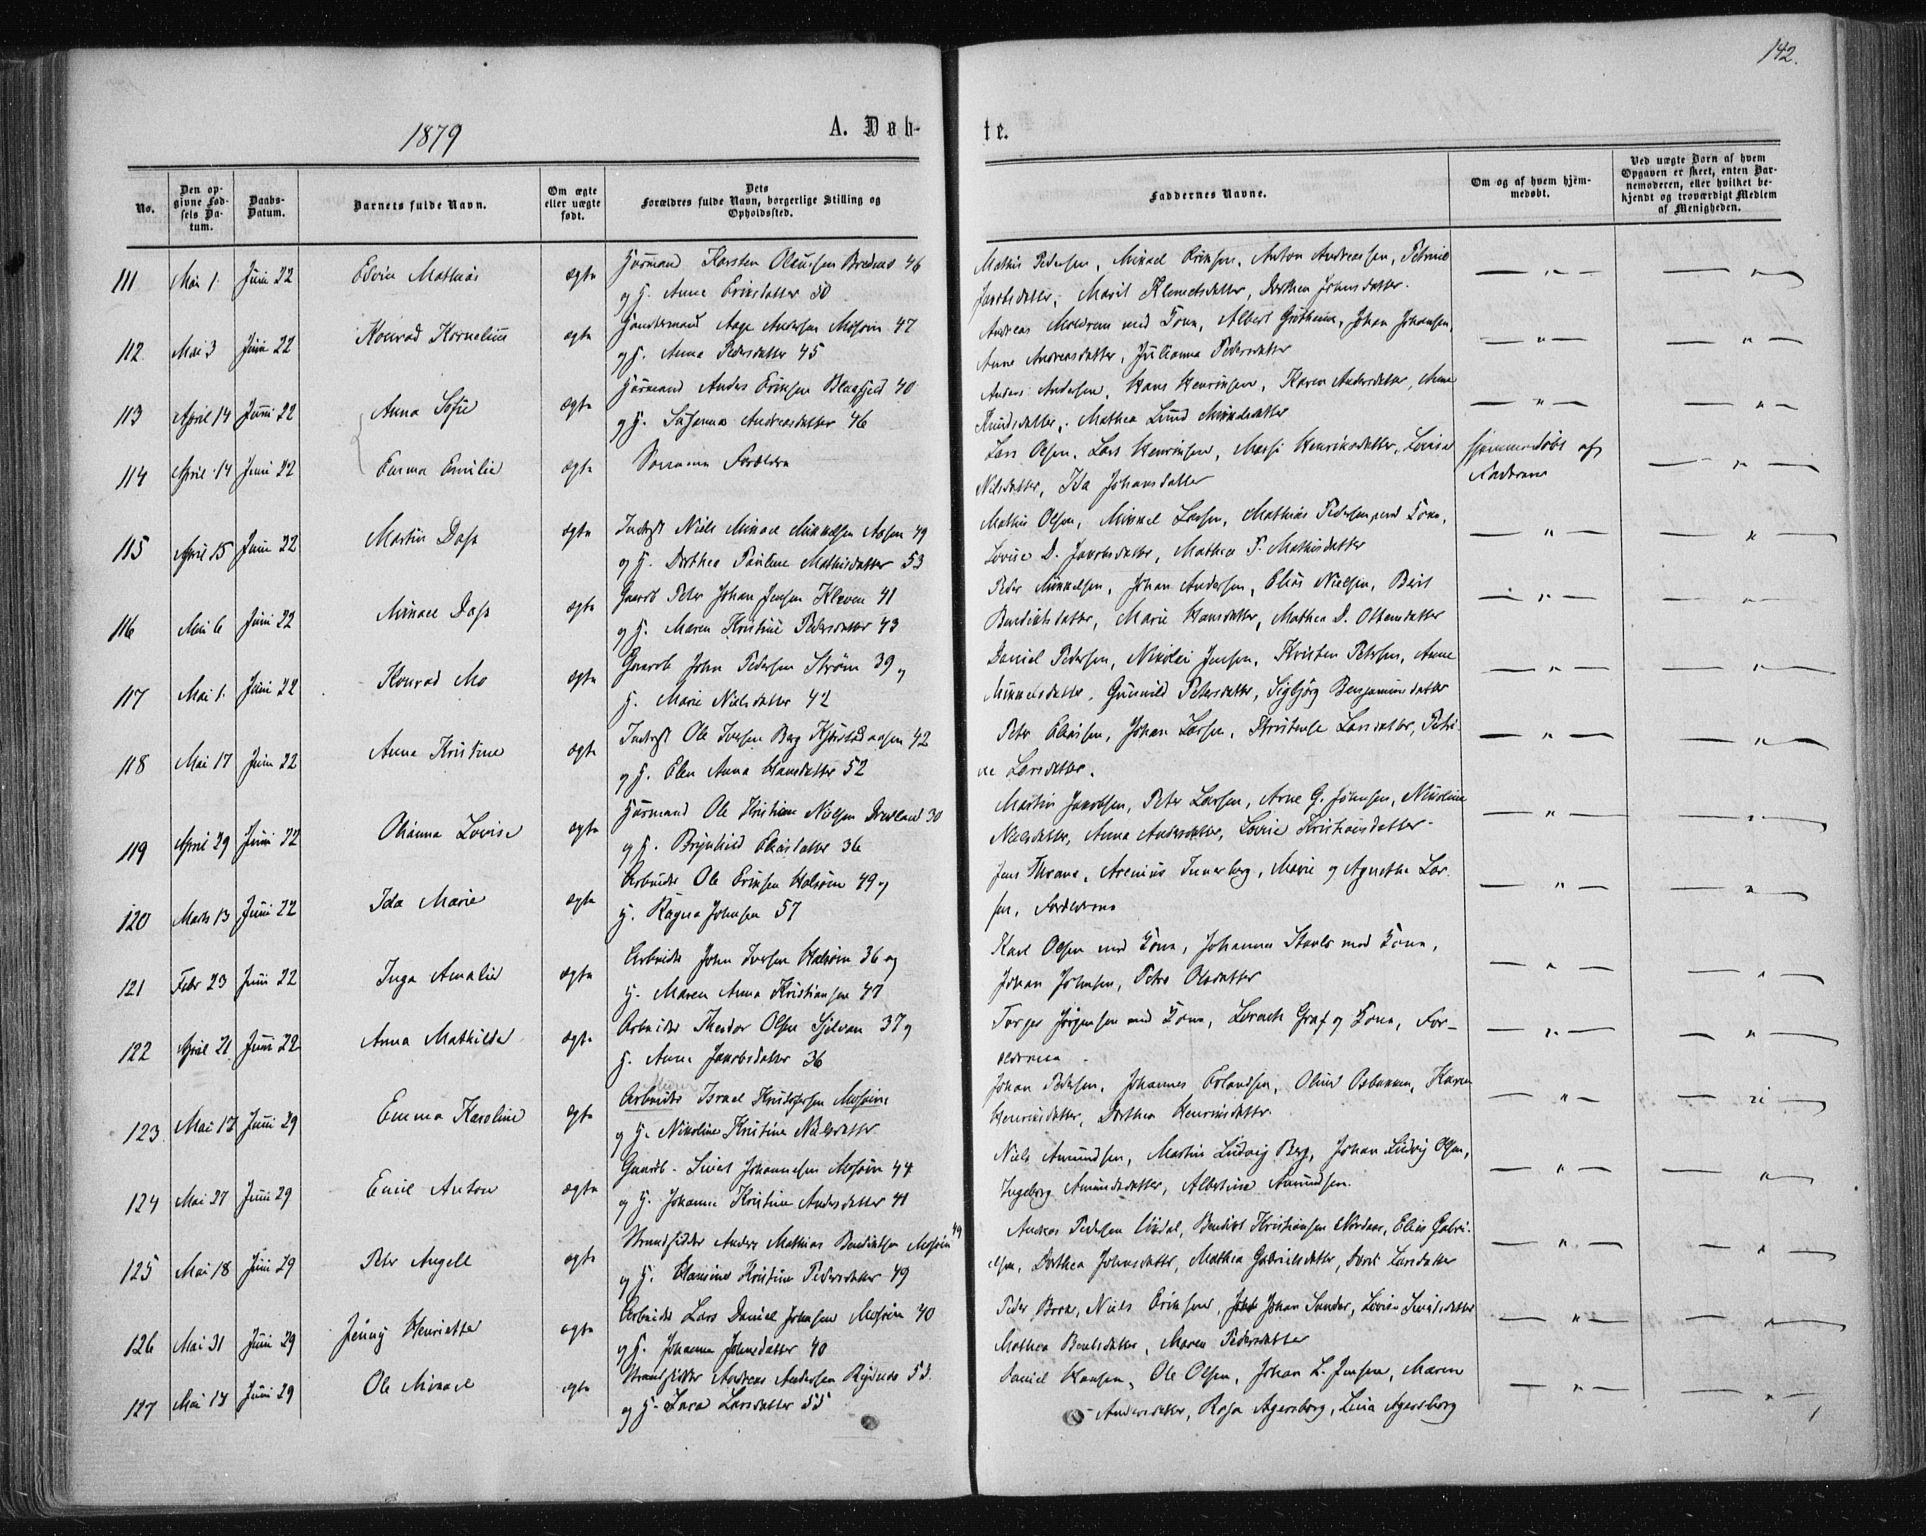 142.
1879
A. Døb-
te.
No.
Den op-
givne Fød-
sels Da-
tum.
Daabs-
Datum.
Barnets fulde Navn.
Om ægte
eller uægte
født.
Dets
Forældres fulde Navn, borgerlige Stilling og
Opholdssted.
Faddernes Navne.
Om og af hvem hjem-
medøbt.
Ved uægte Børn af hvem
Opgaven er skeet, enten Bar-
nemoderen, eller hvilket be-
kjendt og troværdigt Medlem
af Menigheden.
111 Mai 1. Juni 22 Edvin Mathias ægte Huusmand Karsten Olausen Brednes 46
og H. Anne Eriksdatter 50
Mathis Pedersen, Mikael Eriksen, Anton Andreassen, Petrine
Jacobsdatter, Marit Klemetsdatter, Dorthea Johnsdatter.
112. Mai 3 Juni 22 Konrad Kornelius ægte Aage Andersen Mosjøen 47
og H. Anna Pedersdatter 45
Andreas med Kone, Albert, Johan Johansen,
Anne Andreasdatter, Julianna Pedersdatter
113 April 14 Juni 22 Anna Sofie ægte Huusmand Anders Eriksen 40
og H. Susanna Andreasdatter 46
Anders Andersen, Hans Henriksen, Karen Andersdatter, Anne
Knudsdatter, Mathea Lund Mikkelsdatter
114 April 14 Juni 22 Emma Emilie ægte Samme Forældre
Lars Olsen, Lars Henriksen, Henriksdatter, Lovise
Nilsdatter, Ida Johansdatter
Hjemmedøbt af
Faderen
115 April 15 Juni 22 Martin Dass ægte Indrst Niels Mikael Mikkelsen Aasen 49
og H. Dorthea Pauline Mathisdatter 53
Mathis Olsen, Mikkel Larsen, Mathias Pedersen med Kone,
Lovise D. Jacobsdatter, Mathea P. Mathisdatter
116 Mai 6 Juni 22 Mikael Dass ægte Gaardb Peter Johan Jensen Kleven 41
og H. Maren Kristine Pedersdatter 43
Peder Mikkelsen, Johan Andersen, Elias Nielsen, Berit
Benediktsdatter, Marie Hansdatter, Mathea D. Olsensdatter
117 Mai 1. Juni 22 Konrad Mo ægte Gaardb John Pedersen Strøm 39 og
H. Marie Nielsdatter 42
Daniel Pedersen, Nikolai Jensen, Kristen Petersen, Anne
Mikkelsdatter, Gunhild Petersdatter, Sigbjørg Benjaminsdatter
118 Mai 17 Juni 22 Anna Kristine ægte Indrst Ole Iversen Berg 42
og H. Elen Anna Hansdatter 52
Peter Eliassen, Johan Larsen, Kristense Larsdatter, Petri-
ne Larsdatter.
119 April 29 Juni 22 Olianna Lovise ægte Huusmand Ole Kristian Nielsen Drevland 30
og H. Brynhild Eliasdatter 36
Martin Jakobsen, Peter Larsen, Arne G. Johnsen, Nikoline
Nielsdatter, Anna Andersdatter, Lovise Kristiansdatter.
120 Marts 13 Juni 22 Ida Marie ægte Arbeider Ole Eriksen Halsøen 49 og
H. Ragna Johnsen 57
Jens Thrane, Arenius, Marie og Agnethe Lar-
sen, Forældrene
121 Febr 23 Juni 22 Inga Amalie ægte Arbeider John Iversen Halsøen 36 og
H. Maren Anna Kristiansen 47
Karl Olsen med Kone, Johannes med Kone,
Johan Johnsen, Petra Olsdatter
122 April 21 Juni 22 Anna Mathilde ægte Arbeider Theodor Olsen Sjelvan 37 og
H. Anne Jacobsdatter 36
Torger Jørgensen med Kone, Graf og Kone, For-
ældrene
123 Mai 12 Juni 29 Emma Karoline ægte Arbeider Israel Kristofersen Mosjøen
og H. Nikoline Kristine Nielsdatter
Johan Pedersen, Johannes Erlandsen, Karen
Henriksdatter, Dorthea Henriksdatter.
124 Mai 27 Juni 29 Emil Anton ægte Gaardb. Johannesen Mosjøen 44
og H. Johanne Kristine Andersdatter 41
Niels Amundsen, Martin Ludvig Berg, Johan Ludvig Olsen,
Ingeborg Amundsdatter, Albertine Amundsen.
125 Mai 18 Juni 29 Petr Angell ægte Strandsidder Anders Mathias Bendiktsen Mosjøen 49
og H. Hansine Kristine Pedersdatter 49
Andreas Pedersen, Bendikt Kristiansen, Elias Gabri-
elsen, Dorthea Johnsdatter, Mathea Gabrielsdatter, Larsdatter
126 Mai 31 Juni 29 Jenny Henriette ægte Arbeider Lars Daniel Johnsen Mosjøen 40
og H. Johanna Johnsdatter 40
Peder, Niels Eriksen, Johan, Lovise
Mathea, Maren Pedersdatter
127 Mai 13 Juni 29 Ole Mikael ægte Strandsidder Andreas Andersen 53.
og H. Lava Larsdatter 55
Daniel Hansen, Ole Olsen, Johan L. Jensen, Maren
Andersdatter, Rosa Agersborg, Lina Agersborg